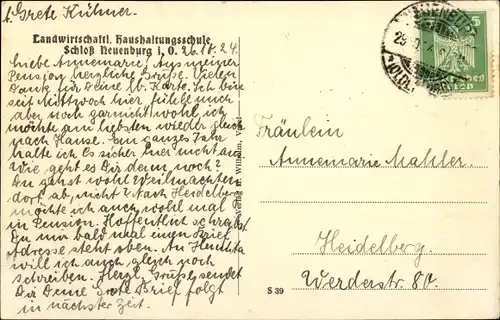 b. Grete Kühner.
Landwirtschaftl. Haushaltungsschule
Schloß Neuenburg i. O. 26.10.24
Liebe Annemarie, Aus meiner
Pension herzliche Grüße. Vielen
Dank für Deine lb. Karte. Ich bin
seit Mittwoch hier, fühle mich
aber noch garnicht wohl, ich
möchte am liebsten wieder gleich
nach Hause. Ein ganzes Jahr
halte ich es sicher hier nicht aus
Wie geht es Dir denn noch?
Du gehst wohl Weihnachten
dort ab, nicht? Nach Heidelberg
möchte ich auch wohl mal
in Pension. Hoffentlich schreibst
Du mir bald mal einen Brief
Adresse steht oben. An Hennita
will ich auch gleich noch
schreiben. Herzl. Grüße sendet
Dir Deine Grete Brief folgt
in nächster Zeit.
Verlag H. Wilhelm,
NEUENBURG
(OLDB.)
5
Fräulein
Annemarie Mahler.
Heidelberg.
Werderstr. 80.
S 39